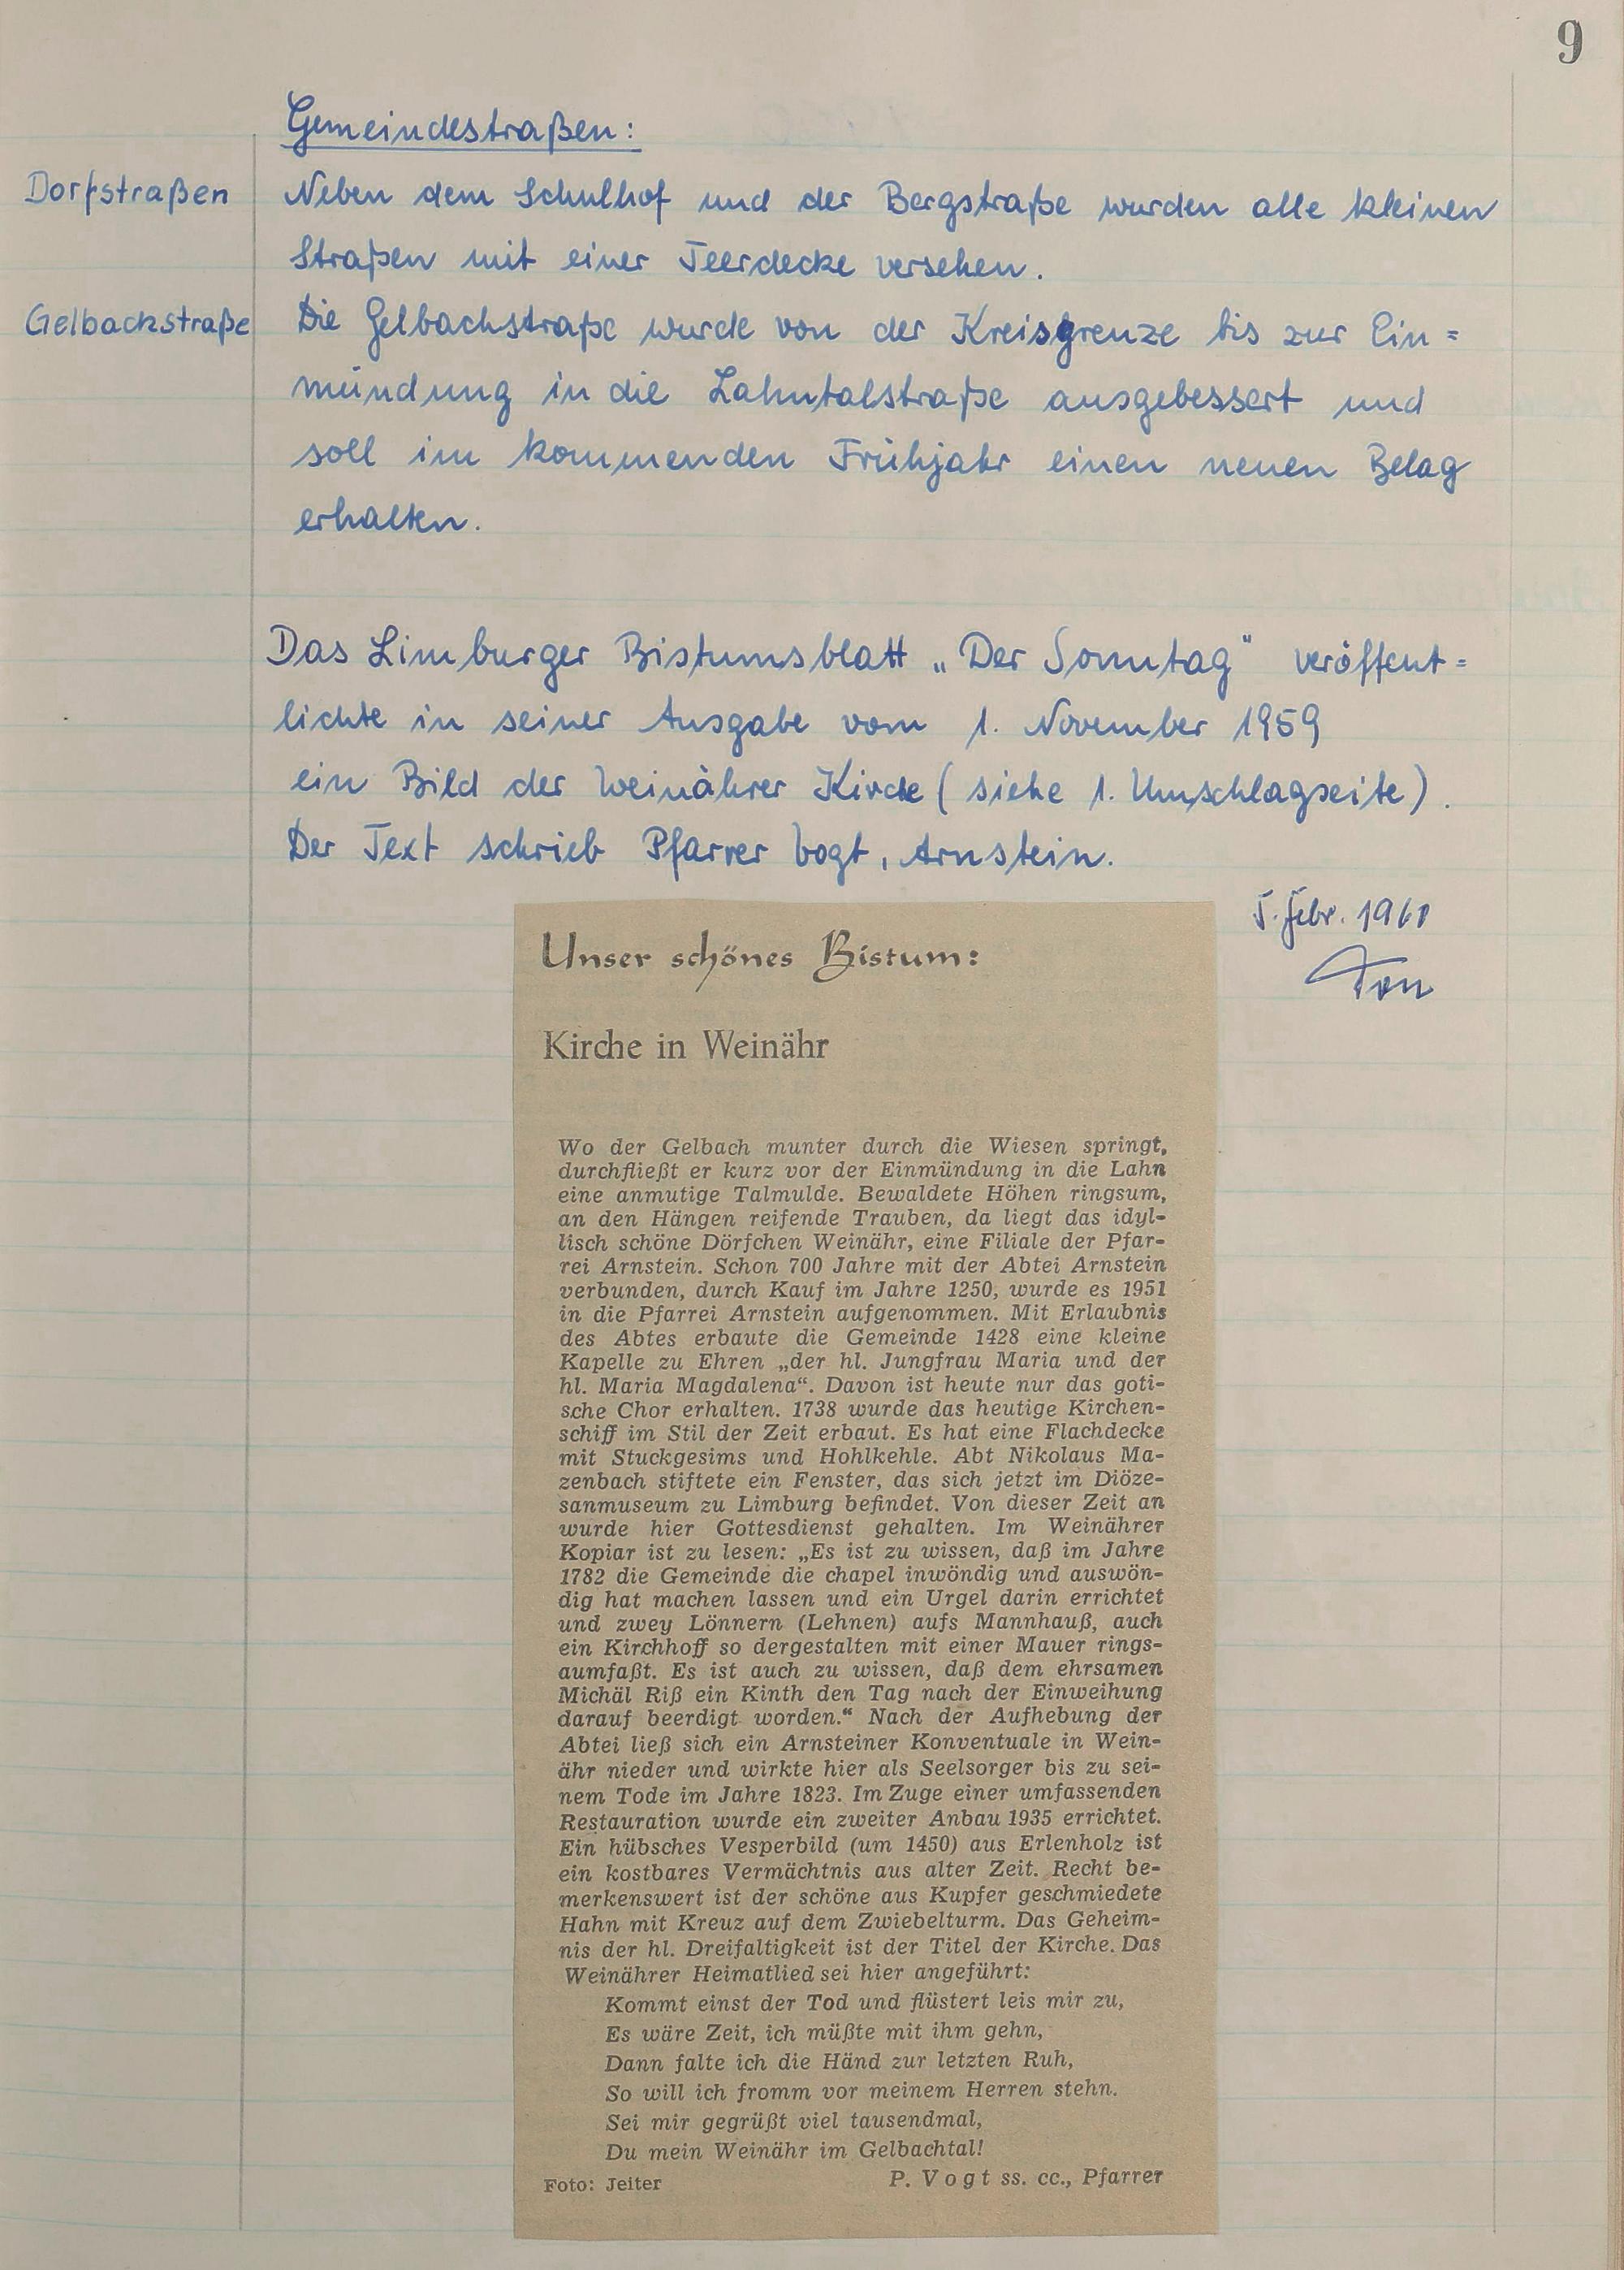 9
Gemeindestraßen:
Dorfstraßen
Neben dem Schulhof und der Bergstraße wurden alle kleinen
Straßen mit einer Teerdecke versehen.
Gelbachstraße
Die Gelbachstraße wurde von der Kreisgrenze bis zur Ein=
mündung in die Lahntalstraße ausgebessert und
soll im kommenden Frühjahr einen neuen Belag
erhalten.
Das Limburger Bistumsblatt „Der Sonntag" veröffent=
lichte in seiner Ausgabe vom 1. November 1959
ein Bild der Weinährer Kirche (siehe 1. Umschlagseite).
Der Text schrieb Pfarrer Vogt, Arnstein.
5. Febr. 1960
Unser schönes Bistum:
Kirche in Weinähr
Wo der Gelbach munter durch die Wiesen springt,
durchfließt er kurz vor der Einmündung in die Lahn
eine anmutige Talmulde. Bewaldete Höhen ringsum,
an den Hängen reifende Trauben, da liegt das idyl-
lisch schöne Dörfchen Weinähr, eine Filiale der Pfar-
rei Arnstein. Schon 700 Jahre mit der Abtei Arnstein
verbunden, durch Kauf im Jahre 1250, wurde es 1951
in die Pfarrei Arnstein aufgenommen. Mit Erlaubnis
des Abtes erbaute die Gemeinde 1428 eine kleine
Kapelle zu Ehren „der hl. Jungfrau Maria und der
hl. Maria Magdalena“. Davon ist heute nur das goti-
sche Chor erhalten. 1738 wurde das heutige Kirchen-
schiff im Stil der Zeit erbaut. Es hat eine Flachdecke
mit Stuckgesims und Hohlkehle. Abt Nikolaus Ma-
zenbach stiftete ein Fenster, das sich jetzt im Diöze-
sanmuseum zu Limburg befindet. Von dieser Zeit an
wurde hier Gottesdienst gehalten. Im Weinährer
Kopiar ist zu lesen: „Es ist zu wissen, daß im Jahre
1782 die Gemeinde die chapel inwöndig und auswön-
dig hat machen lassen und ein Urgel darin errichtet
und zwey Lönnern (Lehnen) aufs Mannhauß, auch
ein Kirchhoff so dergestalten mit einer Mauer rings-
aumfaßt. Es ist auch zu wissen, daß dem ehrsamen
Michäl Riß ein Kinth den Tag nach der Einweihung
darauf beerdigt worden.“ Nach der Aufhebung der
Abtei ließ sich ein Arnsteiner Konventuale in Wein-
ähr nieder und wirkte hier als Seelsorger bis zu sei-
nem Tode im Jahre 1823. Im Zuge einer umfassenden
Restauration wurde ein zweiter Anbau 1935 errichtet.
Ein hübsches Vesperbild (um 1450) aus Erlenholz ist
ein kostbares Vermächtnis aus alter Zeit. Recht be-
merkenswert ist der schöne aus Kupfer geschmiedete
Hahn mit Kreuz auf dem Zwiebelturm. Das Geheim-
nis der hl. Dreifaltigkeit ist der Titel der Kirche. Das
Weinährer Heimatlied sei hier angeführt:
Kommt einst der Tod und flüstert leis mir zu,
Es wäre Zeit, ich müßte mit ihm gehn,
Dann falte ich die Händ zur letzten Ruh,
So will ich fromm vor meinem Herren stehn.
Sei mir gegrüßt viel tausendmal,
Du mein Weinähr im Gelbachtal!
Foto: Jeiter
P. Vogt ss. cc., Pfarrer